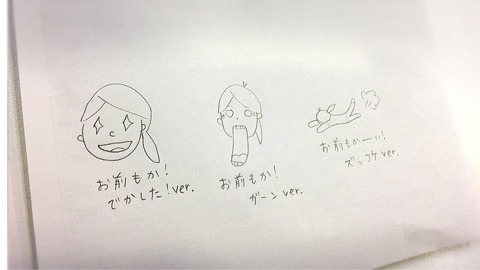 お前もか！
でかした！ver.
お前もか！
ガーンver.
お前もかーい！
ズッコケver.